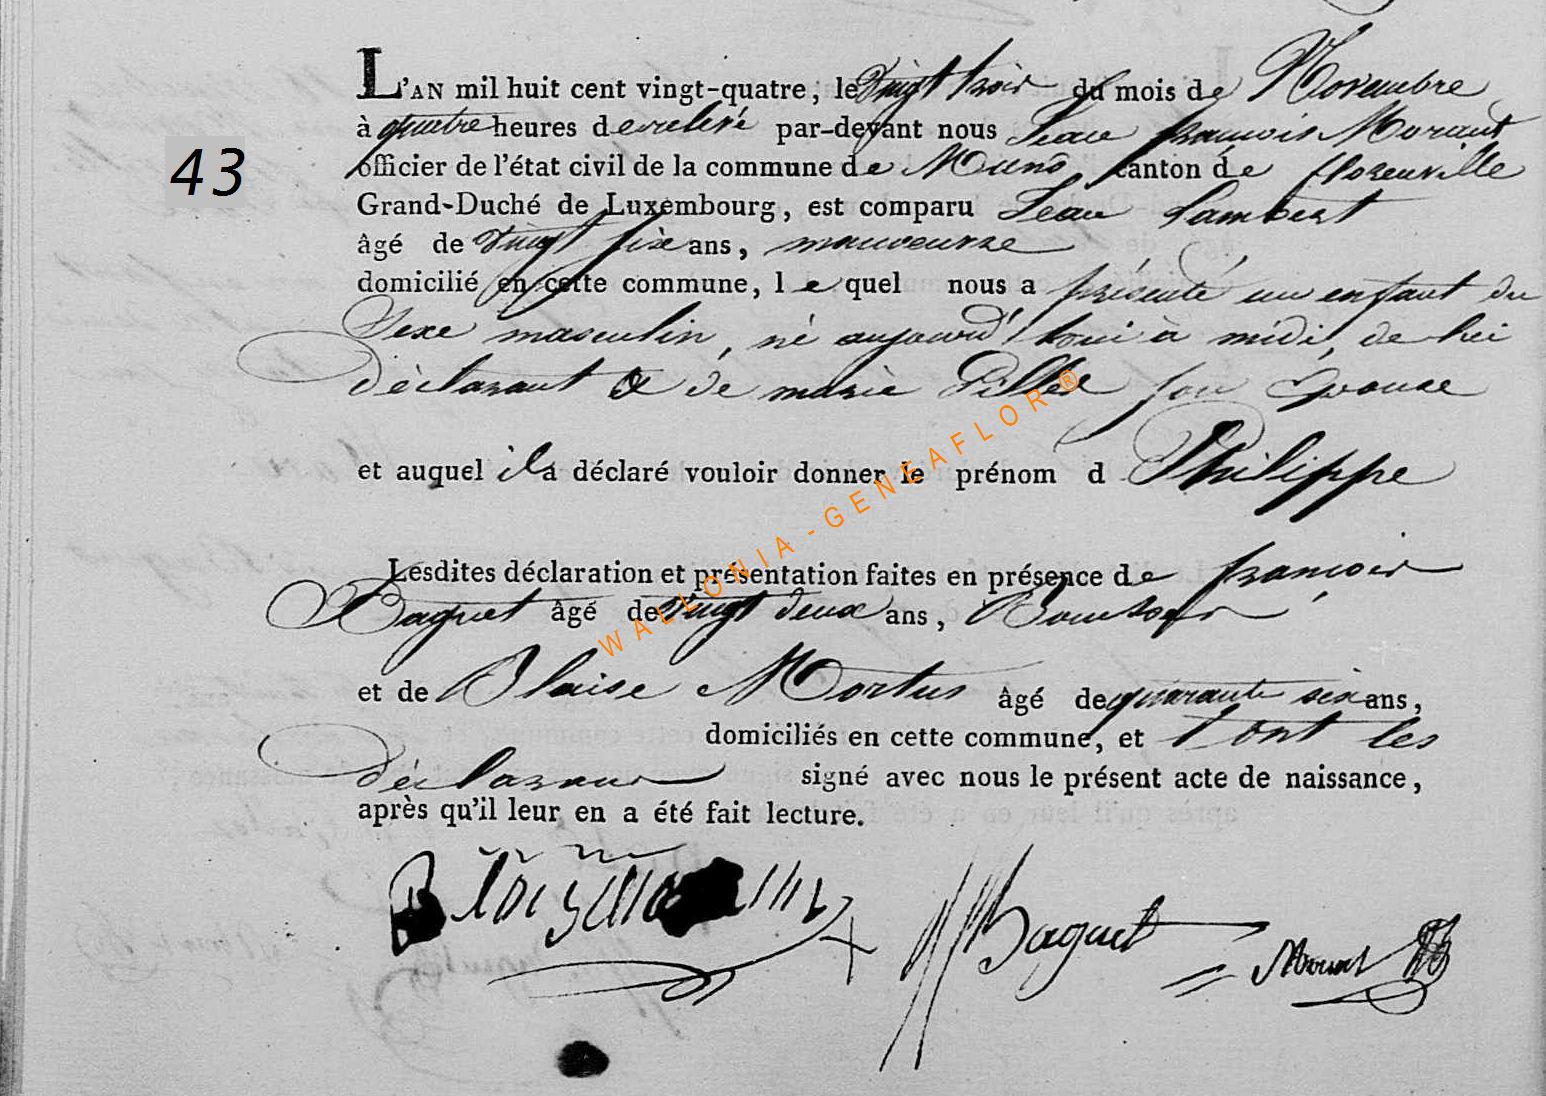 43
L'AN mil huit cent vingt-quatre, le vingt trois du mois de Novembre
à quatre heures de relevé par-devant nous Jean françois Morant
officier de l'état civil de la commune de Muno canton de florenville
Grand-Duché de Luxembourg, est comparu Jean Lambert
âgé de vingt six ans, manoeuvre
domicilié en cette commune, le quel nous a présenté un enfant du
Sexe masculin, né aujourd'houi à midi, de lui
déclarant & de marie Gilles son Epouse
et auquel il a déclaré vouloir donner le prénom d Philippe
Lesdites déclaration et présentation faites en présence de françois
Baquet âgé de vingt deux ans,
et de Blaise Mortus âgé de quarante six ans,
domiciliés en cette commune, et l'ont les
déclarans signé avec nous le présent acte de naissance,
après qu'il leur en a été fait lecture.
Baquet
Morant
WALLONIA-GENEAFLOR®